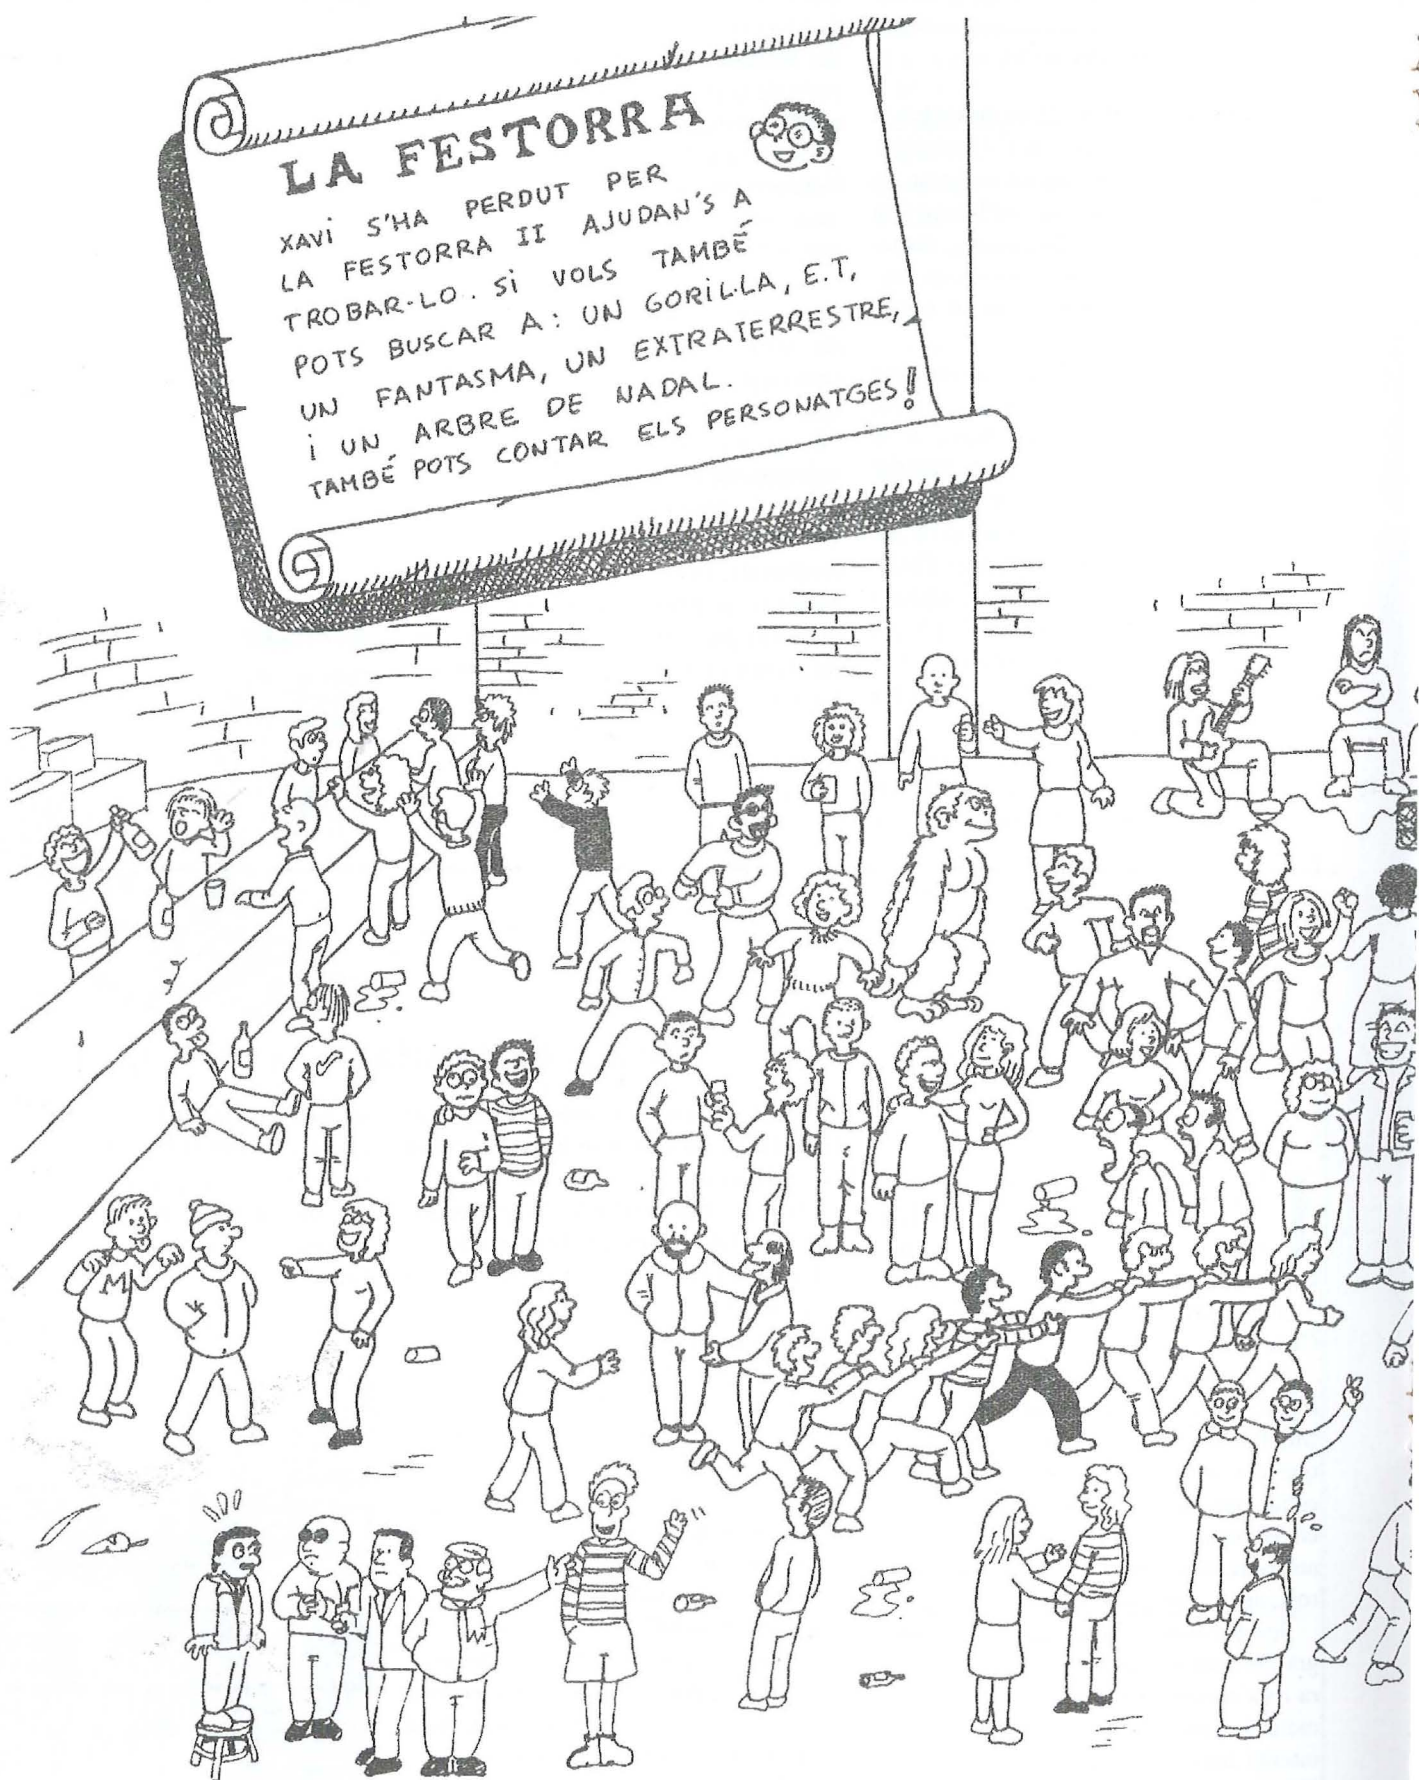 LA FESTORRA
XAVi S'HA PERDUT PER
LA FESTORRA II AJUDAN'S A
TROBAR-LO. Si VOLS TAMBÉ
POTS BUSCAR A: UN GORIL·LA, E.T,
UN FANTASMA, UN EXTRATERRESTRE,
i UN ARBRE DE NADAL.
TAMBÉ POTS CONTAR ELS PERSONATGES!
M